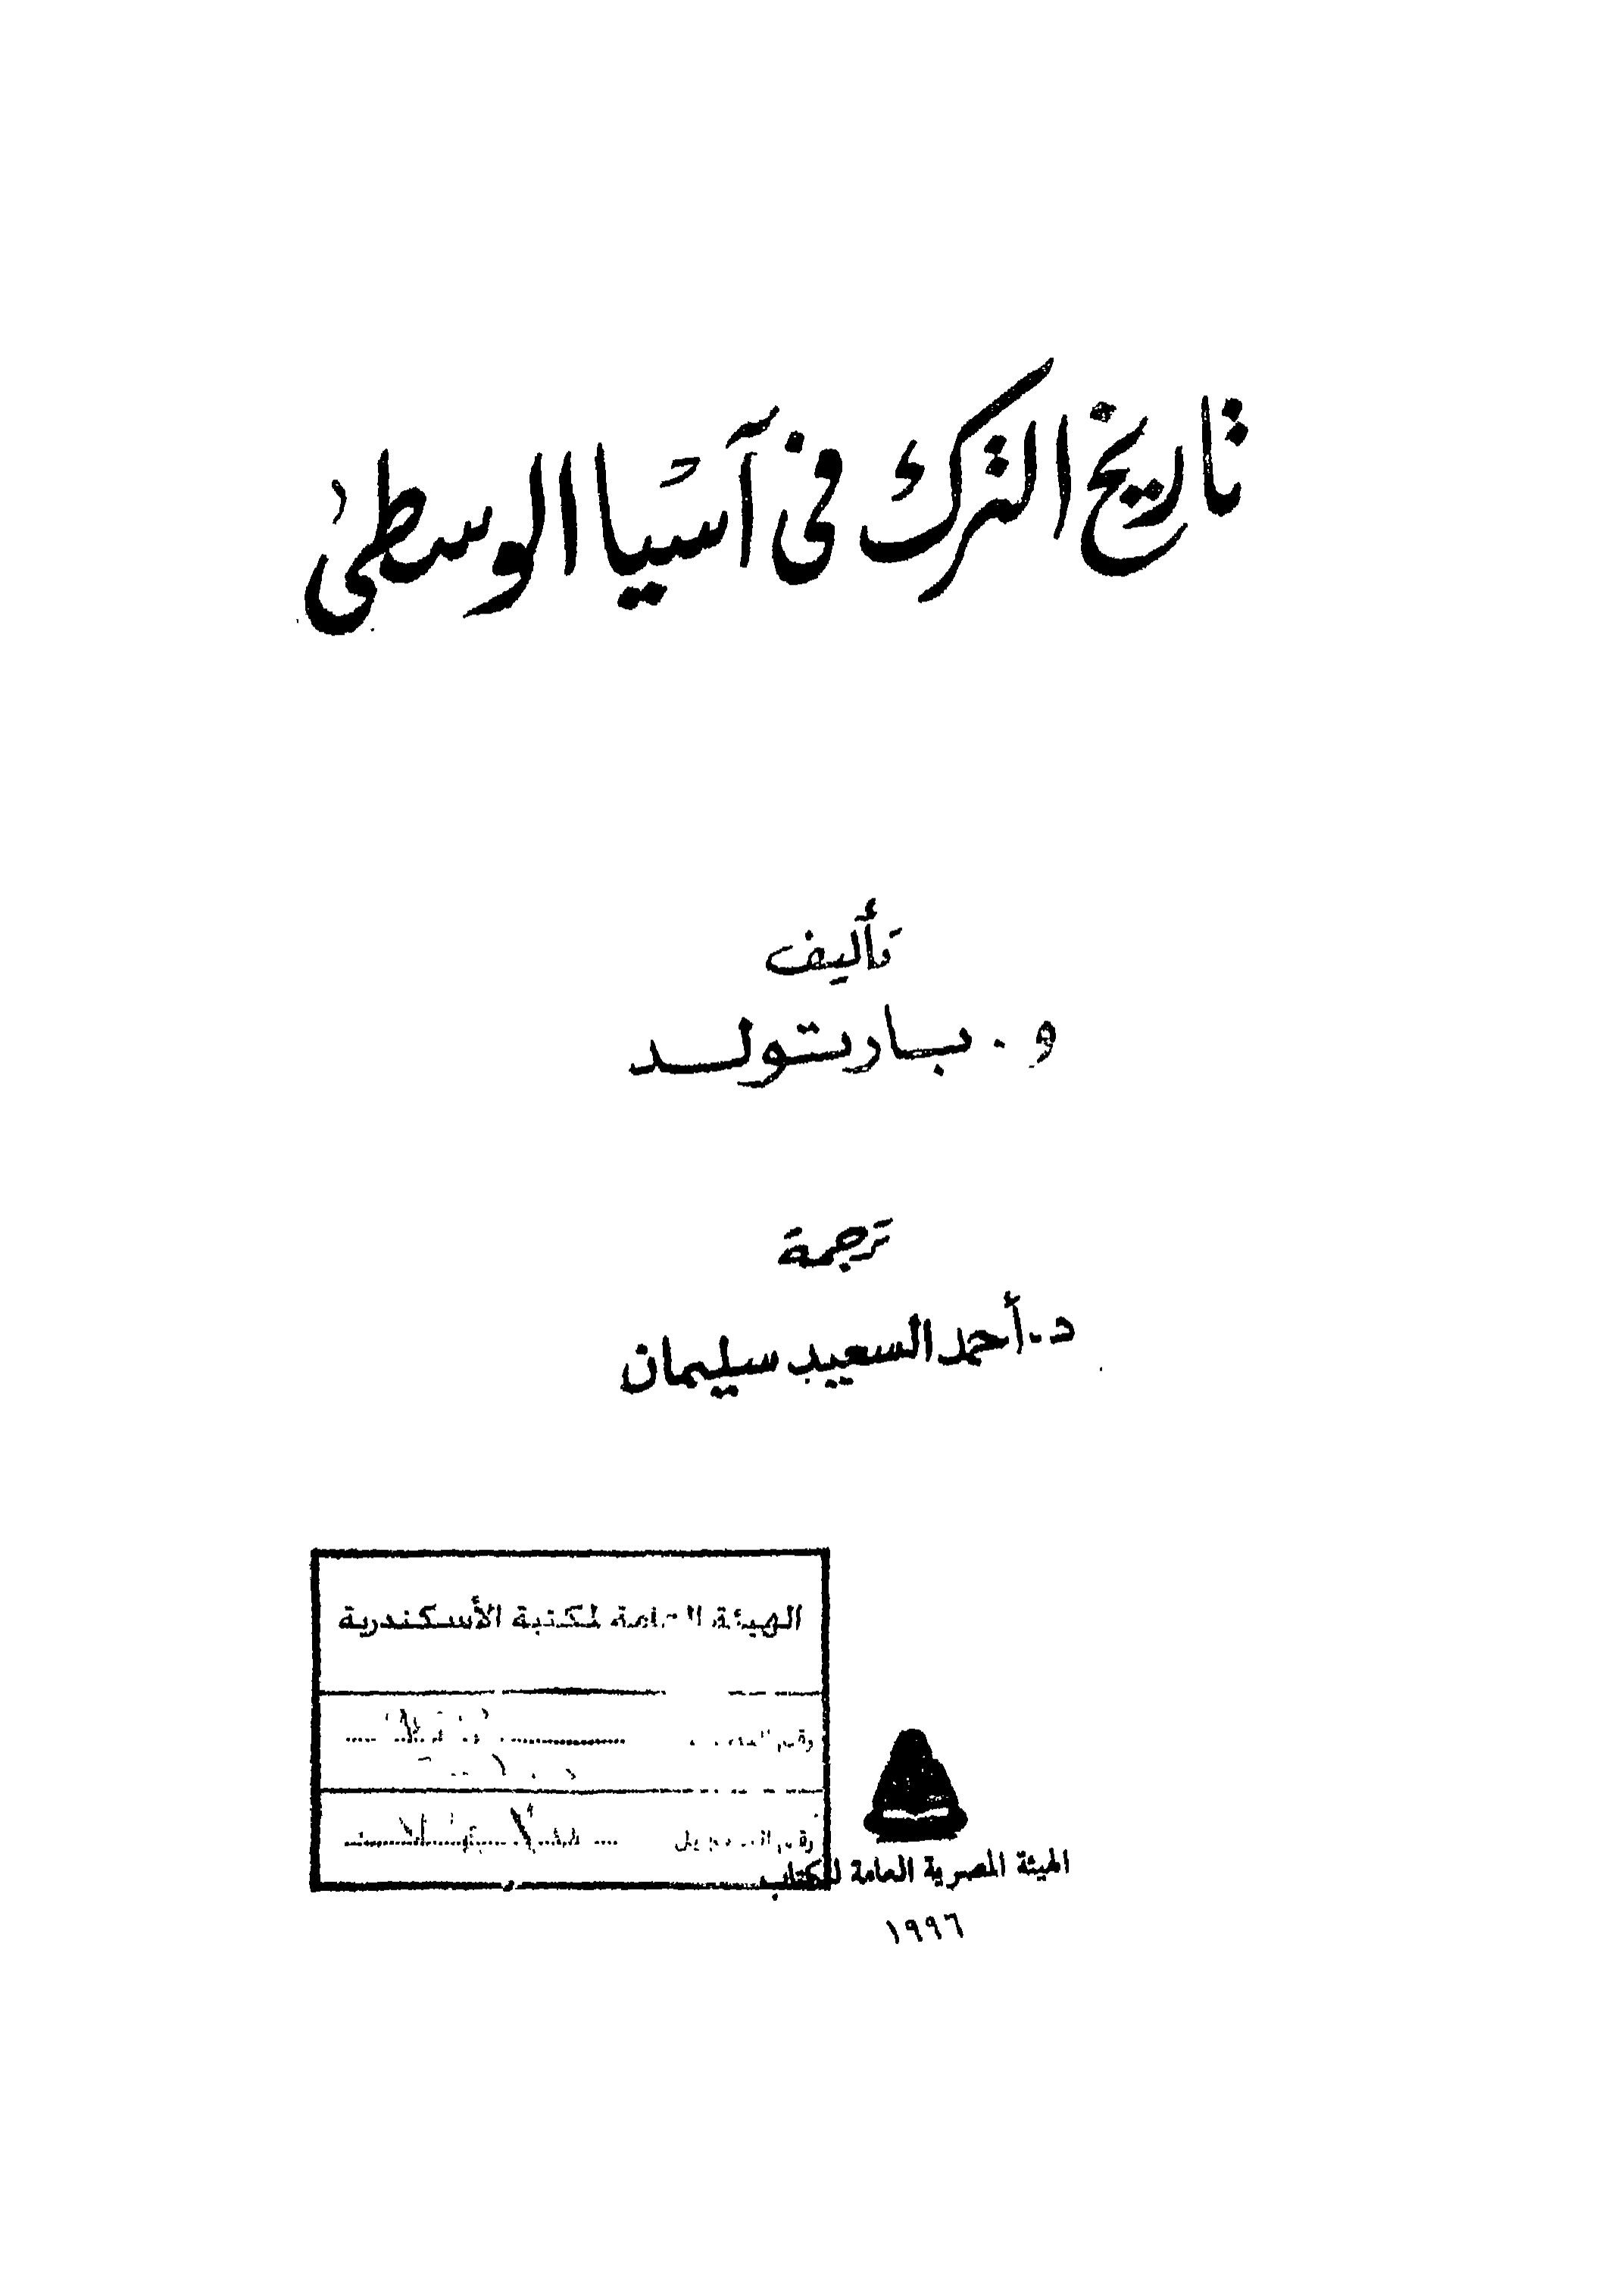 تاريخ الترك في آسيا الوسطى
تأليف
و. بارتولد
ترجمة
د. أحمد السعيد سليمان
الهيئة العامة لمكتبة الأسكندرية
رقم
رقم التسجيل
الهيئة المصرية العامة للكتاب
١٩٩٦